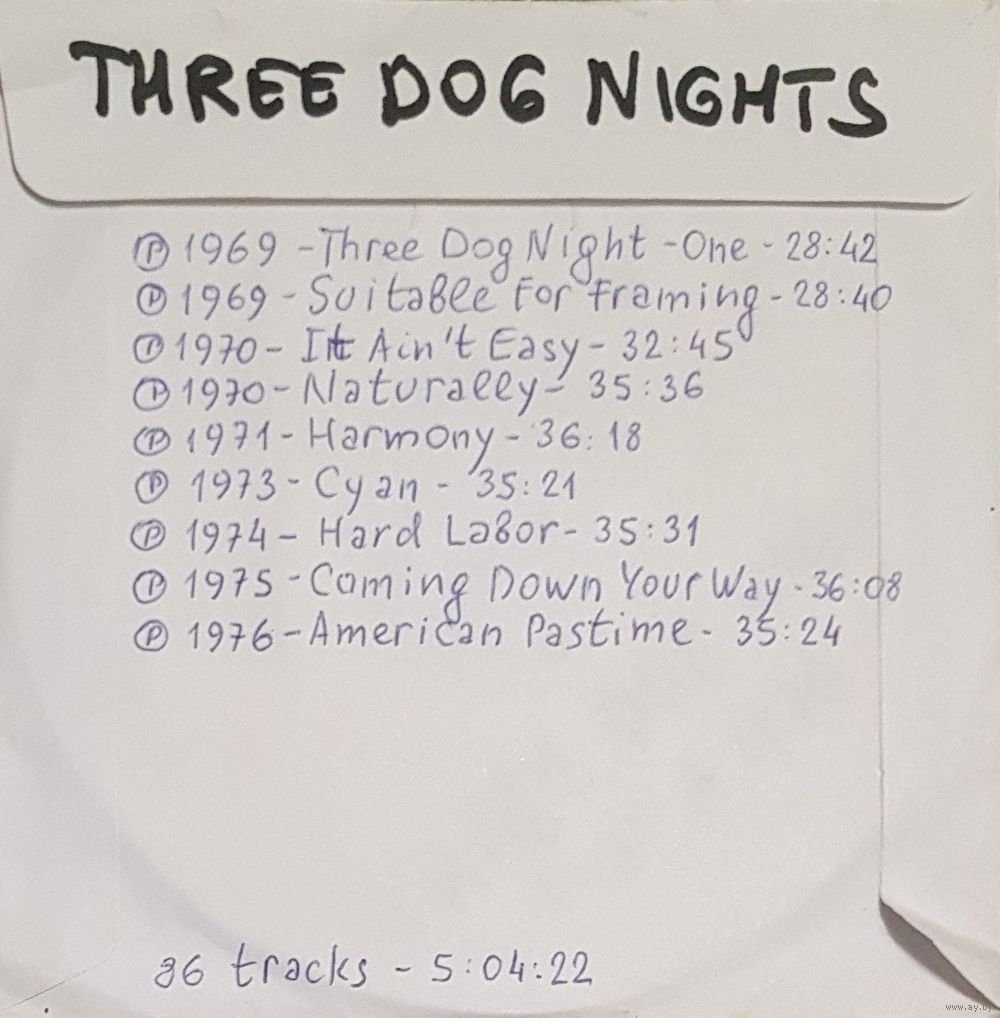 THREE DOG NIGHTS
Ⓟ 1969 - Three Dog Night - One - 28:42
Ⓟ 1969 - Suitable For Framing - 28:40
Ⓟ 1970 - It Ain't Easy - 32:45
Ⓟ 1970 - Naturally - 35:36
Ⓟ 1971 - Harmony - 36:18
Ⓟ 1973 - Cyan - 35:21
Ⓟ 1974 - Hard Labor - 35:31
Ⓟ 1975 - Coming Down Your Way - 36:08
Ⓟ 1976 - American Pastime - 35:24
tracks - 5:04:22